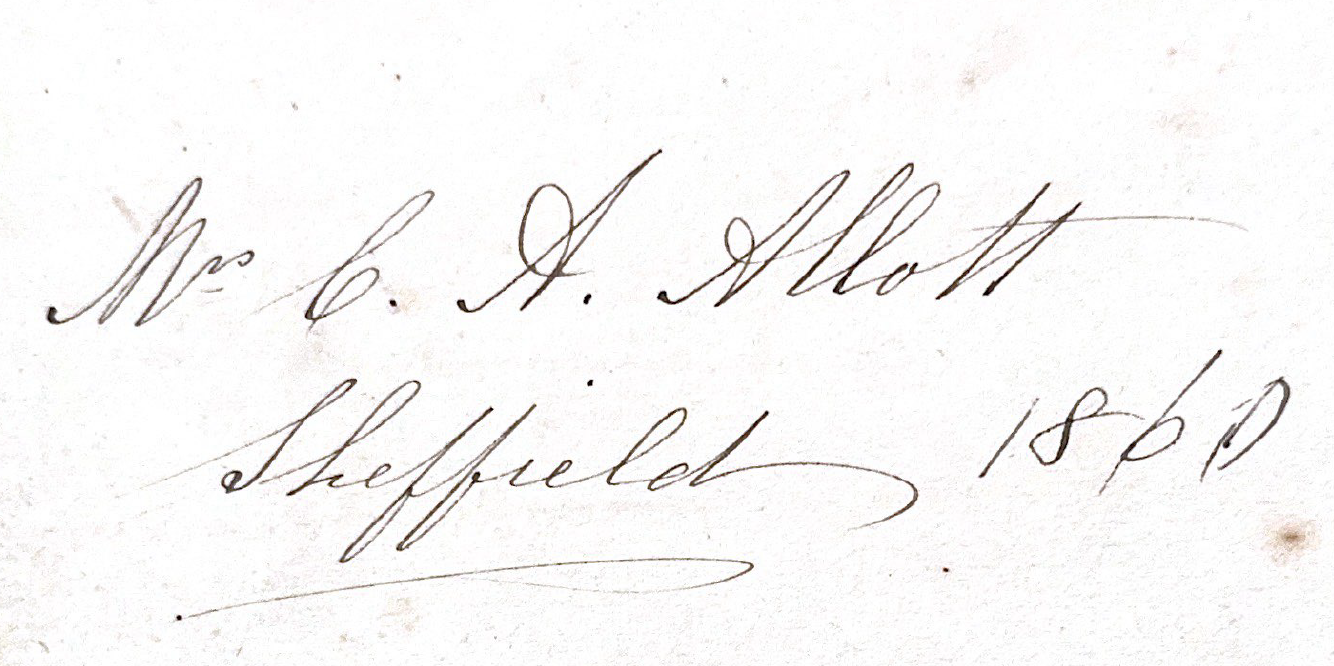 Mrs C. A. Allott
Sheffield 1860